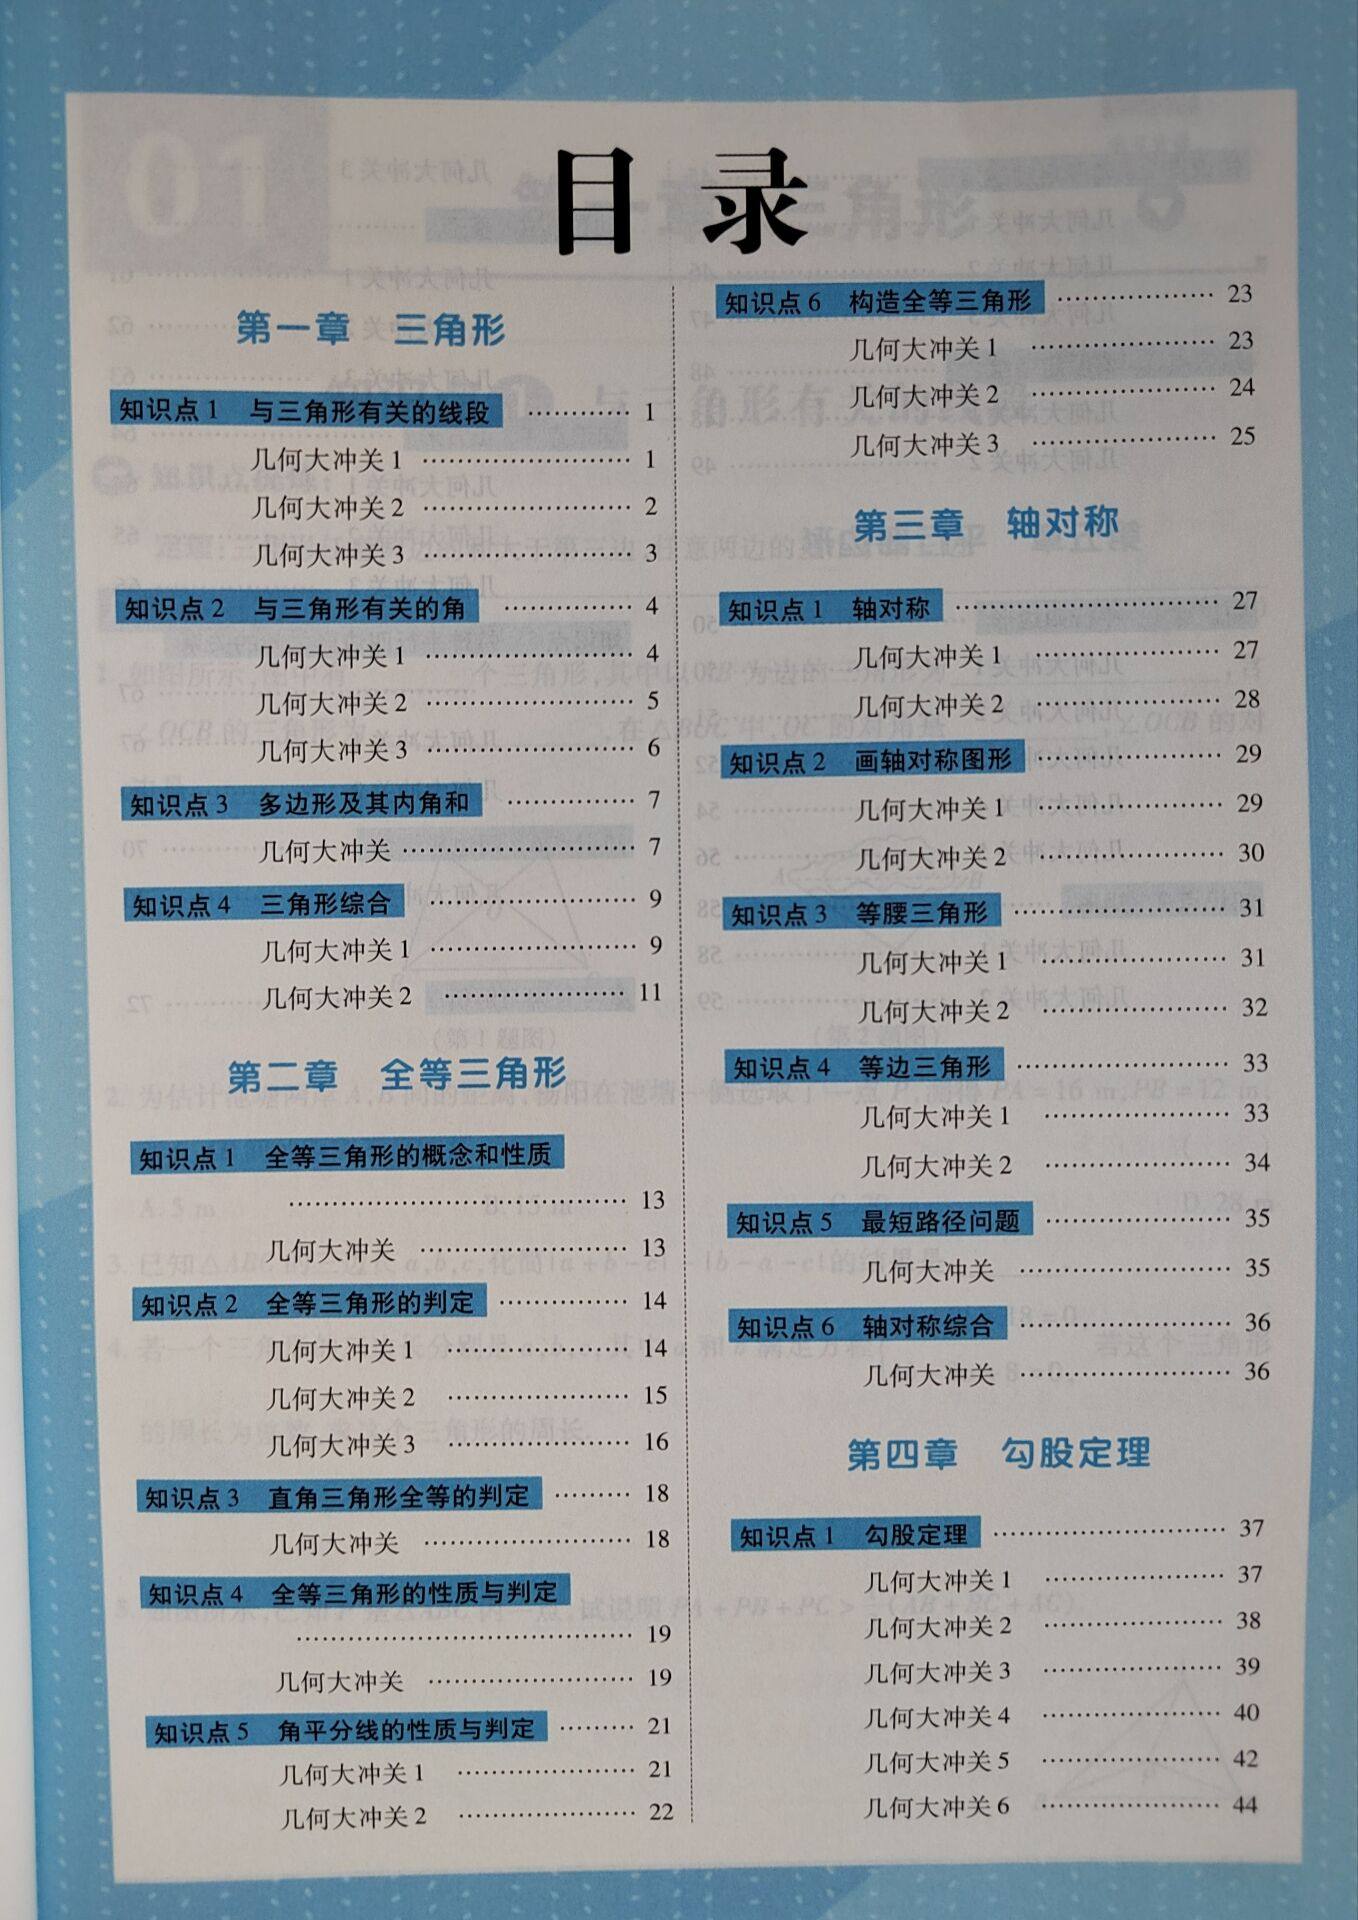 目录
第一章 三角形
知识点1 与三角形有关的线段 ············ 1
几何大冲关1 ························ 1
几何大冲关2 ························ 2
几何大冲关3 ························ 3
知识点2 与三角形有关的角 ··············· 4
几何大冲关1 ························ 4
几何大冲关2 ························ 5
几何大冲关3 ························ 6
知识点3 多边形及其内角和 ··············· 7
几何大冲关 ··························· 7
知识点4 三角形综合 ························ 9
几何大冲关1 ························ 9
几何大冲关2 ····················· 11
第二章 全等三角形
知识点1 全等三角形的概念和性质
······································· 13
几何大冲关 ························ 13
知识点2 全等三角形的判定 ··············· 14
几何大冲关1 ····················· 14
几何大冲关2 ····················· 15
几何大冲关3 ····················· 16
知识点3 直角三角形全等的判定 ········· 18
几何大冲关 ························ 18
知识点4 全等三角形的性质与判定
······································· 19
几何大冲关 ························ 19
知识点5 角平分线的性质与判定 ········· 21
几何大冲关1 ····················· 21
几何大冲关2 ····················· 22
知识点6 构造全等三角形 ·················· 23
几何大冲关1 ····················· 23
几何大冲关2 ····················· 24
几何大冲关3 ····················· 25
第三章 轴对称
知识点1 轴对称 ······························ 27
几何大冲关1 ····················· 27
几何大冲关2 ····················· 28
知识点2 画轴对称图形 ····················· 29
几何大冲关1 ····················· 29
几何大冲关2 ····················· 30
知识点3 等腰三角形 ························ 31
几何大冲关1 ····················· 31
几何大冲关2 ····················· 32
知识点4 等边三角形 ························ 33
几何大冲关1 ····················· 33
几何大冲关2 ····················· 34
知识点5 最短路径问题 ····················· 35
几何大冲关 ························ 35
知识点6 轴对称综合 ························ 36
几何大冲关 ························ 36
第四章 勾股定理
知识点1 勾股定理 ··························· 37
几何大冲关1 ····················· 37
几何大冲关2 ····················· 38
几何大冲关3 ····················· 39
几何大冲关4 ····················· 40
几何大冲关5 ····················· 42
几何大冲关6 ····················· 44